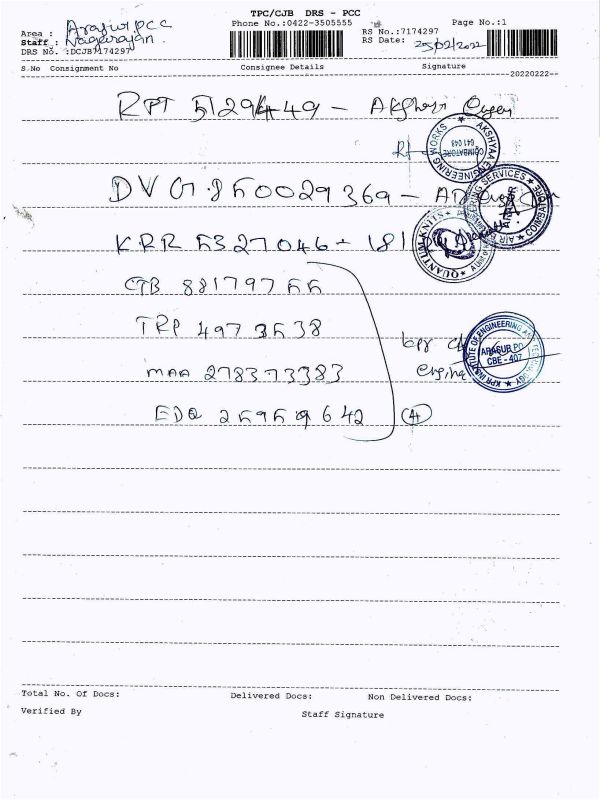 TPC/CJB DRS - PCC
Phone No.:0422-3505555
Page No.:1
Area : Arasur.PCC
Staff : Nagarajan.
DRS No. :DCJB7174297
RS No.:7174297
RS Date: 25/02/2022
S.No Consignment No Consignee Details Signature
20220222
RPT 5129449 -
DVG.850029369 -
KRR 5327046 -
CTB 88179755
TRP 4973538
MAA 278373383
EDQ 25959642 4
AKSHYAA ENGINEERING WORKS
COIMBATORE
641 049
QUANTUM KNITS
KPR INSTITUTE OF ENGINEERING AND TECHNOLOGY
ARASUR PO
CBE - 407
Total No. Of Docs: Delivered Docs: Non Delivered Docs:
Verified By Staff Signature